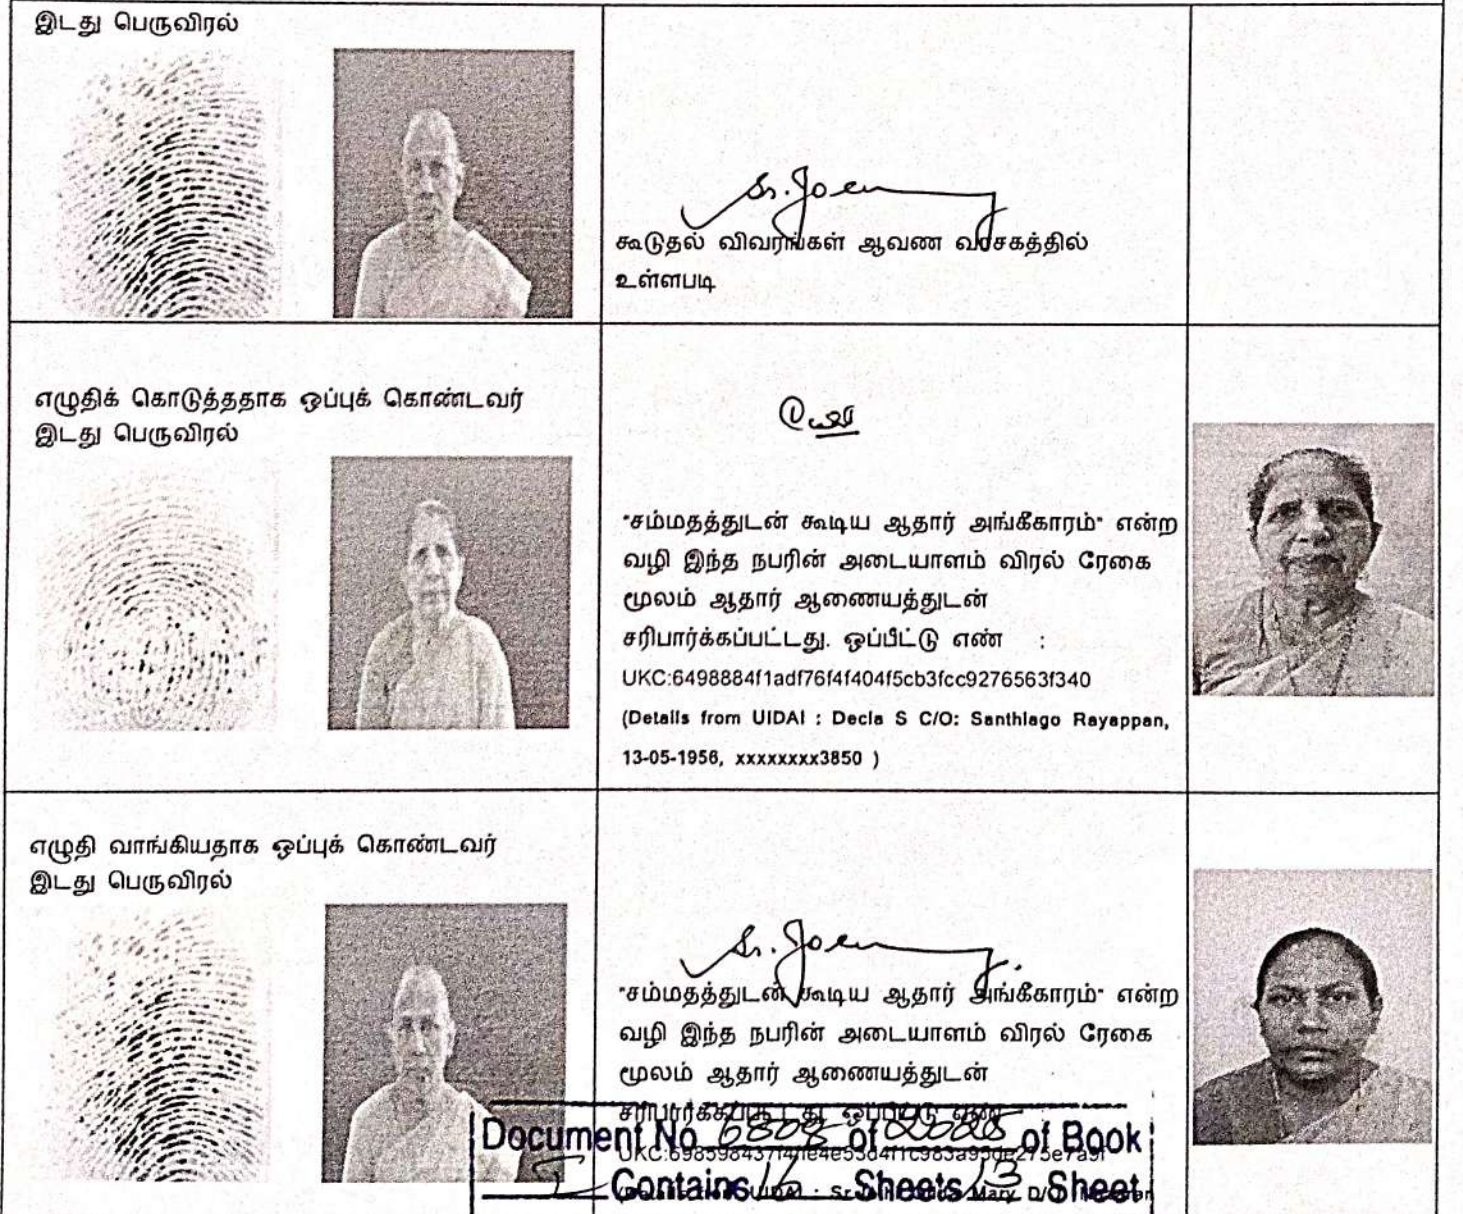 இடது பெருவிரல்
Sr. Joe
கூடுதல் விவரங்கள் ஆவண வாசகத்தில்
உள்ளபடி
எழுதிக் கொடுத்ததாக ஒப்புக் கொண்டவர்
இடது பெருவிரல்
"சம்மதத்துடன் கூடிய ஆதார் அங்கீகாரம்" என்ற
வழி இந்த நபரின் அடையாளம் விரல் ரேகை
மூலம் ஆதார் ஆணையத்துடன்
சரிபார்க்கப்பட்டது. ஒப்பீட்டு எண் :
UKC:6498884f1adf76f4f404f5cb3fcc9276563f340
(Details from UIDAI : Decla S C/O: Santhiago Rayappan,
13-05-1956, xxxxxxxx3850 )
எழுதி வாங்கியதாக ஒப்புக் கொண்டவர்
இடது பெருவிரல்
Sr. Joe
"சம்மதத்துடன் கூடிய ஆதார் அங்கீகாரம்" என்ற
வழி இந்த நபரின் அடையாளம் விரல் ரேகை
மூலம் ஆதார் ஆணையத்துடன்
சரிபார்க்கப்பட்டது ஒப்பீட்டு எண்
Document No 6808 of 2025 of Book
I Contains 16 Sheets 13 Sheet